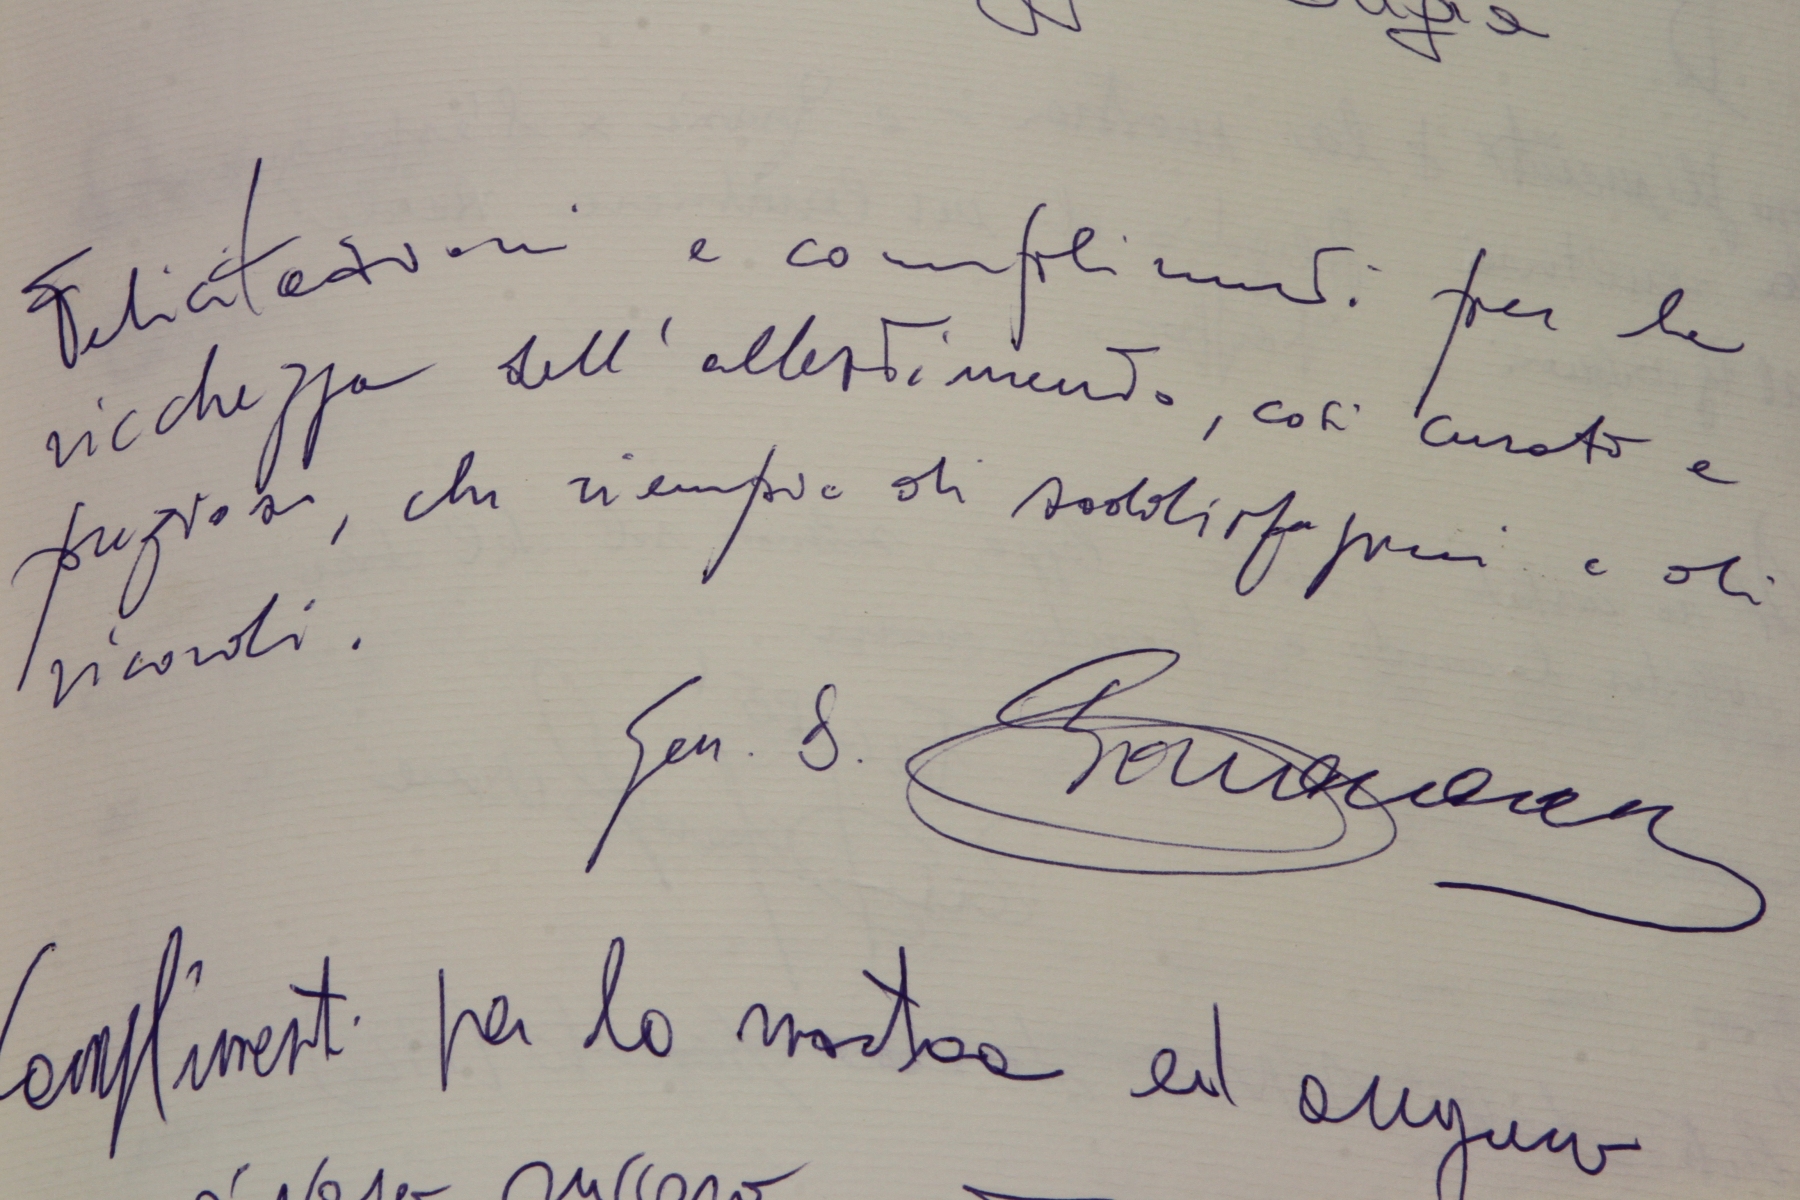 Felicitazioni e complimenti per la
ricchezza dell'allestimento, così curato e
prezioso, che riempie di soddisfazioni e di
ricordi.
Gen. S.
Complimenti per la mostra ed auguro
successo